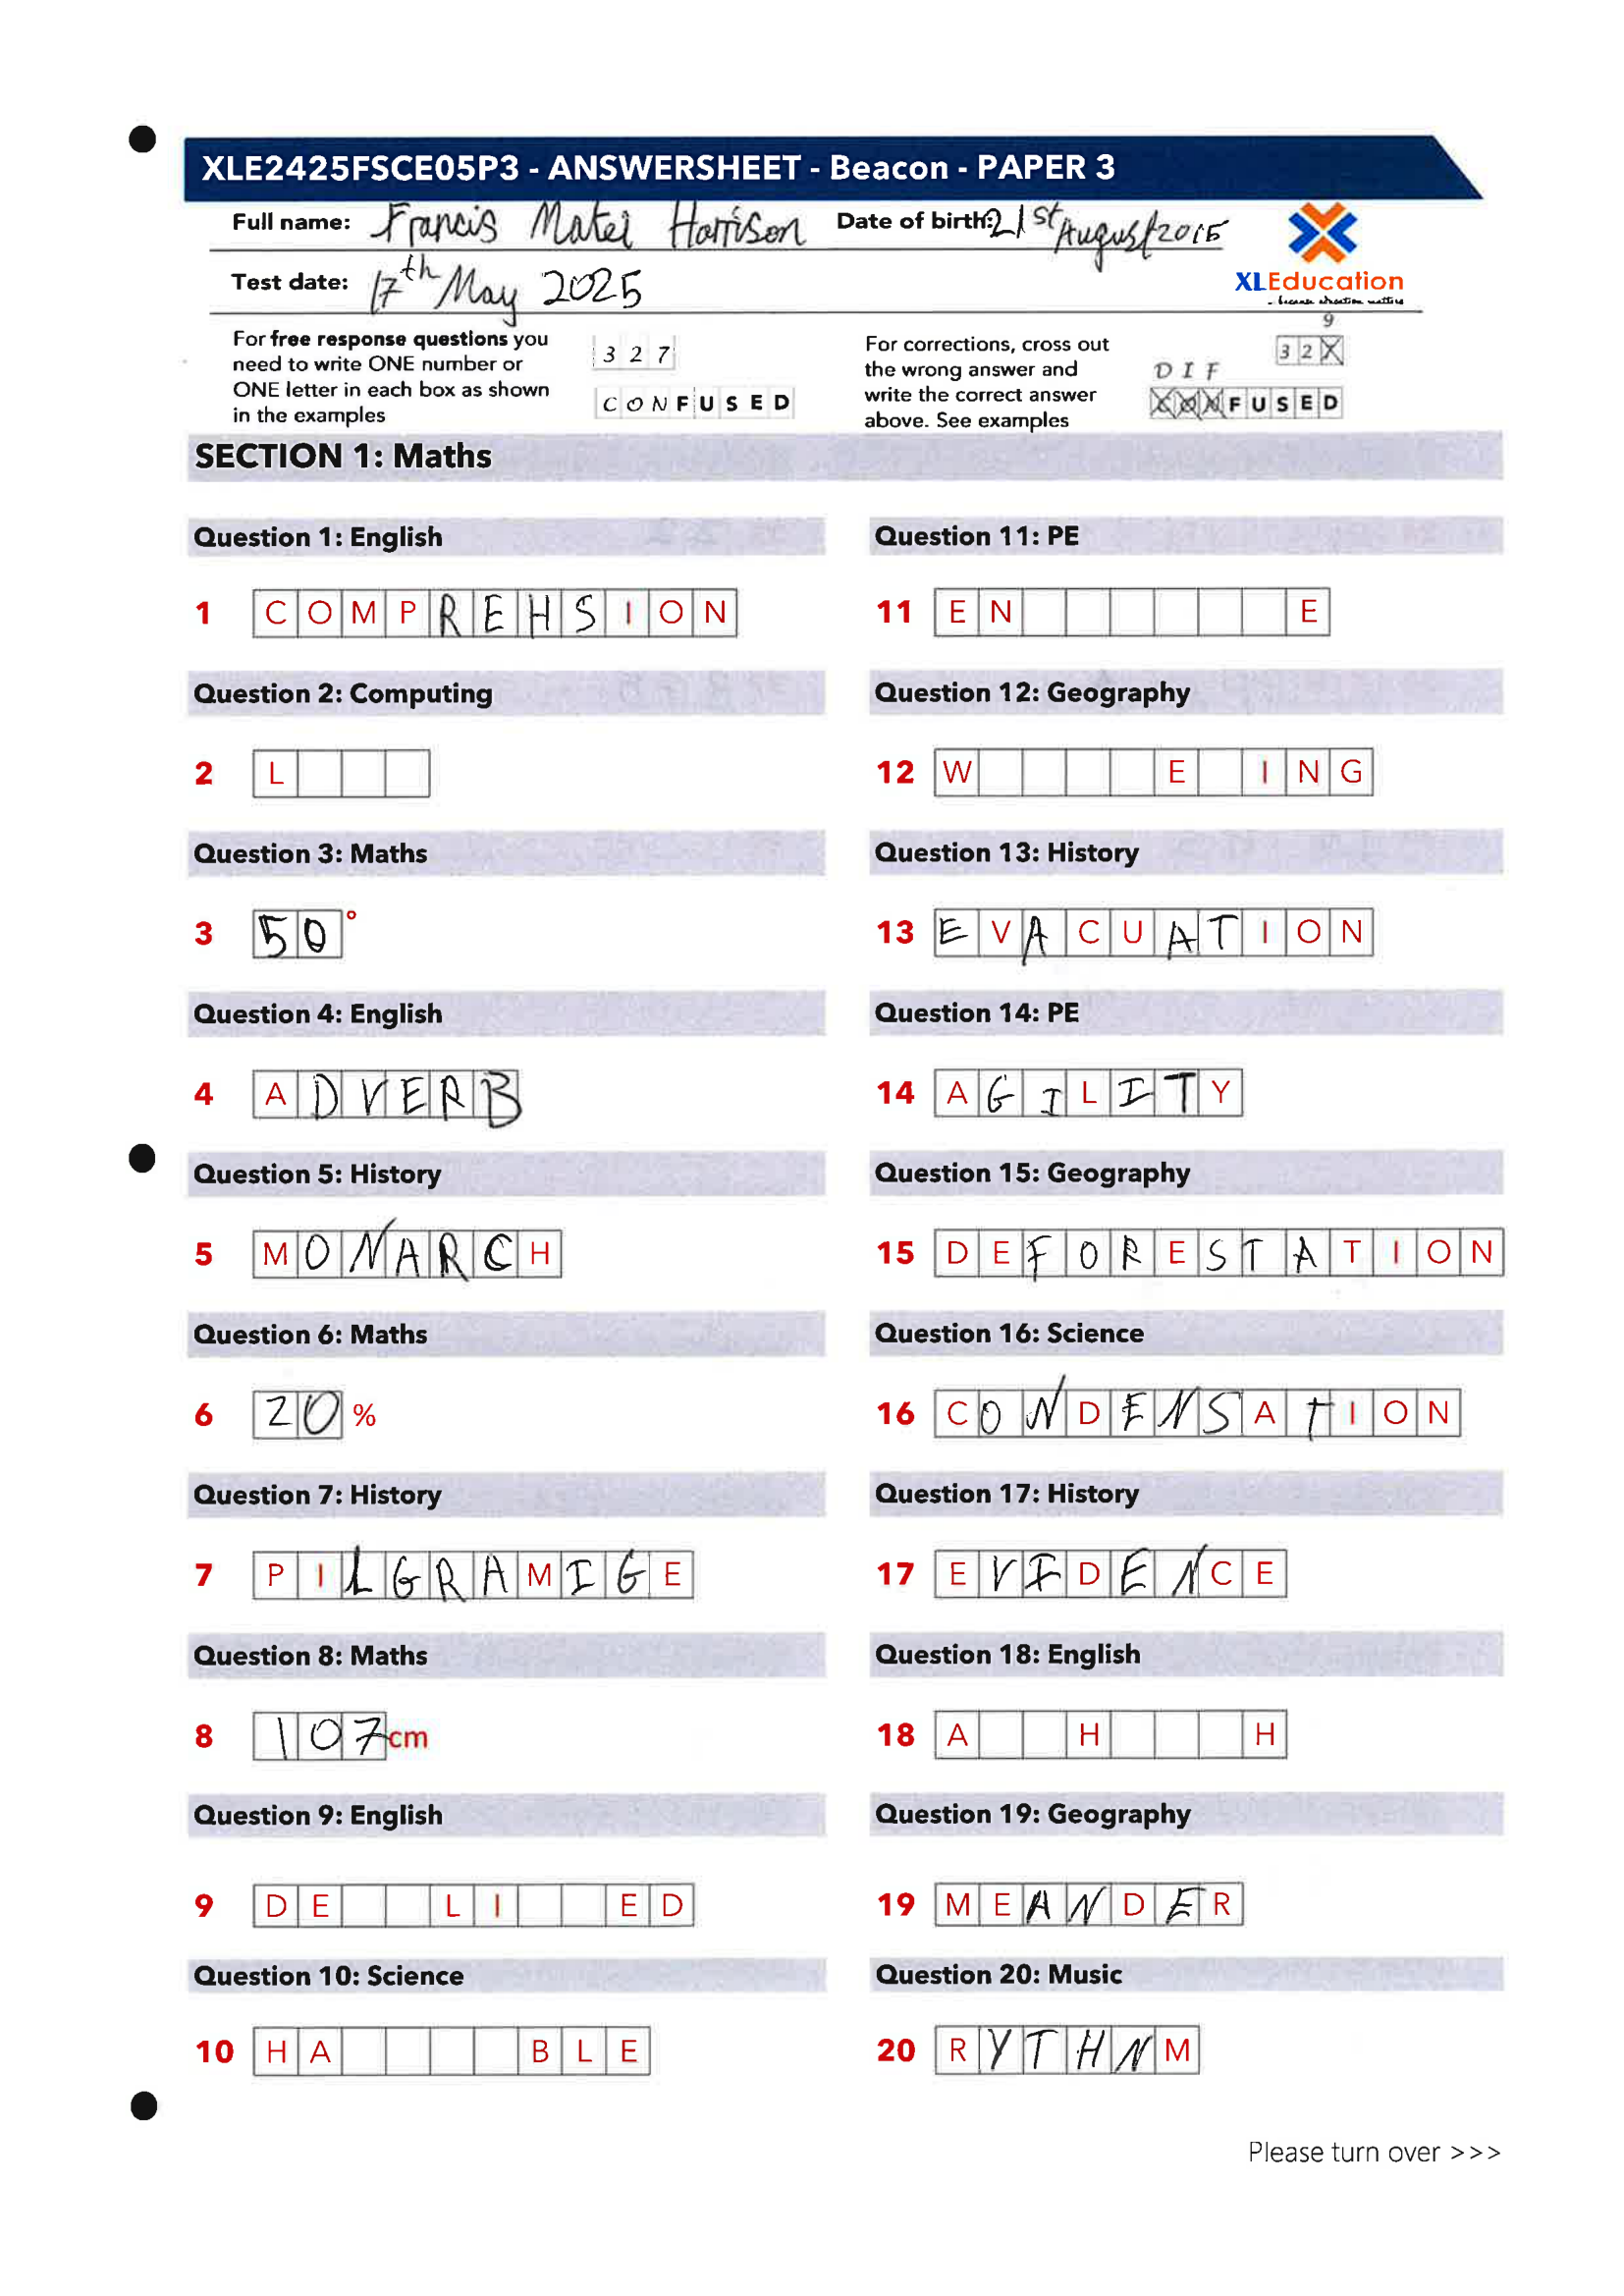 XLE2425FSCE05P3 - ANSWERSHEET - Beacon - PAPER 3
Full name: Francis Matei Harrison Date of birth: 21st August 2015
Test date: 17th May 2025
XLEducation
- because education matters
For free response questions you
need to write ONE number or
ONE letter in each box as shown
in the examples
3 2 7
C O N F U S E D
For corrections, cross out
the wrong answer and
write the correct answer
above. See examples
9
3 2 X
D I F
X X X F U S E D
SECTION 1: Maths
Question 1: English
1 C O M P R E H S I O N
Question 2: Computing
2 L
Question 3: Maths
3 5 0 °
Question 4: English
4 A D V E R B
Question 5: History
5 M O N A R C H
Question 6: Maths
6 2 0 %
Question 7: History
7 P I L G R A M I G E
Question 8: Maths
8 1 0 7 cm
Question 9: English
9 D E L I E D
Question 10: Science
10 H A B L E
Question 11: PE
11 E N E
Question 12: Geography
12 W E I N G
Question 13: History
13 E V A C U A T I O N
Question 14: PE
14 A G I L I T Y
Question 15: Geography
15 D E F O R E S T A T I O N
Question 16: Science
16 C O N D E N S A T I O N
Question 17: History
17 E V I D E N C E
Question 18: English
18 A H H
Question 19: Geography
19 M E A N D E R
Question 20: Music
20 R Y T H N M
Please turn over >>>